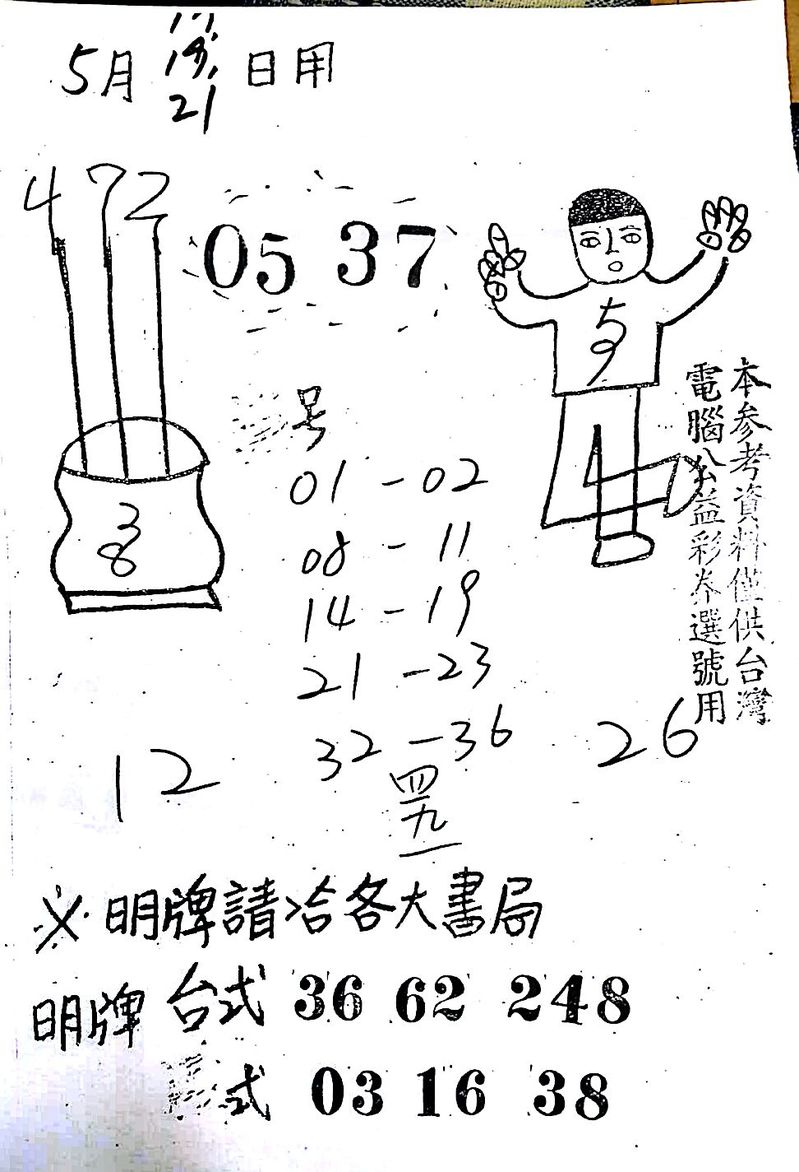 5月 19, 21 日用
472
05 37
号
01-02
08-11
14-19
21-23
32-36
四九一
12
26
38
本参考資料僅供台灣
電腦公益彩券選號用
※明牌請洽各大書局
明牌 台式 36 62 248
式 03 16 38